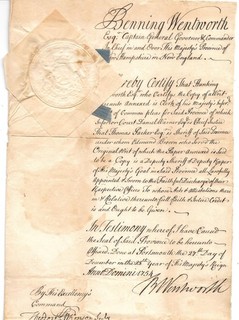 Benning Wentworth
Esq. Captain General Governor & Commander
in Chief in and Over His Majesty's Province of
New Hampshire in New England.
reby Certify That
Esq. who Certifies the Copy of a Writ
hereunto Annexed is Clerk of his Majesty's
of Common pleas for said Province of which
That Thomas Parker Esq. is Sheriff of said
under whom
Original Writ of which the Paper annexed
to be a Copy is a Deputy Sheriff & Deputy Keeper
of His Majesty's Goal in said Province all
Appointed & Sworn to the Faithful Discharge of their
Respective Offices To whose Acts & Attestations there
in & Relation thereunto Full Faith & Entire Credit
is and Ought to be Given
In Testimony whereof I have Caused
the Seal of said Province to be hereunto
Affixed, Done at Portsmouth the 27th Day of
December in the 28th Year of His Majesty's Reign
Annoq Domini 1754
BWentworth
By His Excellency's
Command